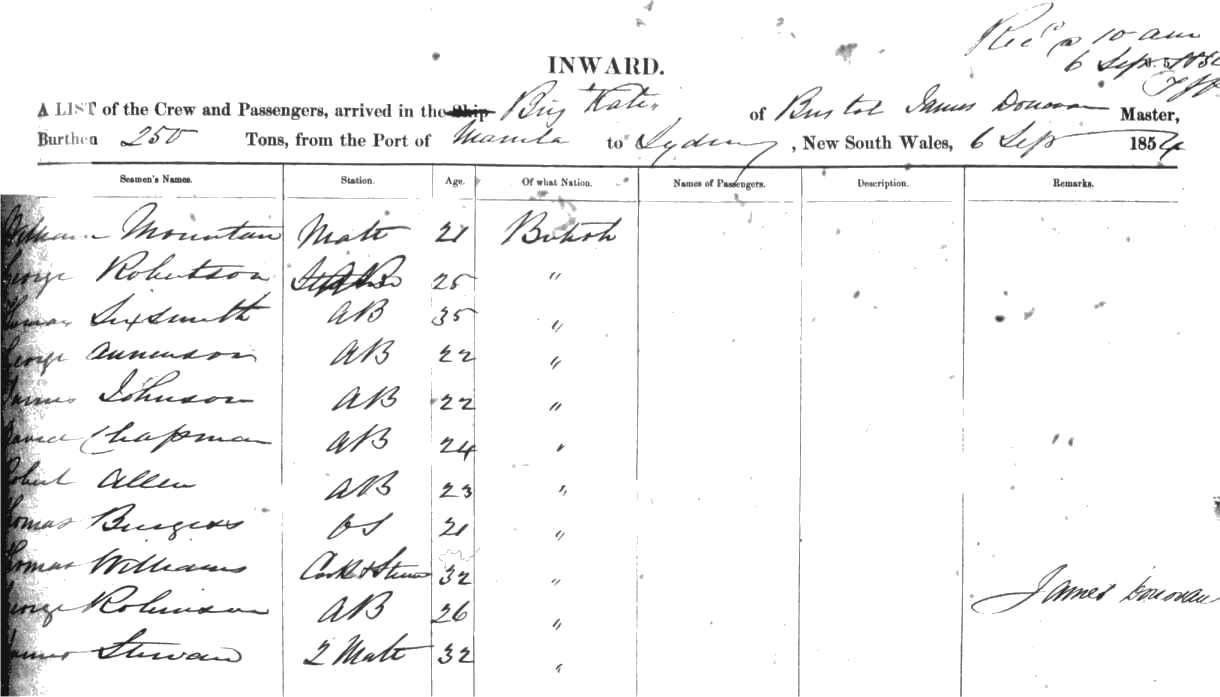 Rec'd 10 am
6 Sep
INWARD.
A LIST of the Crew and Passengers, arrived in the Ship Brig Kate of Bristol James Donovan Master,
Burthen 250 Tons, from the Port of Manila to Sydney, New South Wales, 6 Sep 1854
Seamen's Names. Station. Age. Of what Nation. Names of Passengers. Description. Remarks.
William Mountan Mate 21 British
George Robertson 25 "
Thomas Sixsmith AB 35 "
George AB 22 "
James Johnson AB 22 "
David Chapman AB 24 "
Robert Allen AB 23 "
Thomas Burgess OS 21 "
Thomas Williams Cook & Stew 32 "
James Donovan
George Robinson AB 26 "
James Stewart 2 Mate 32 "